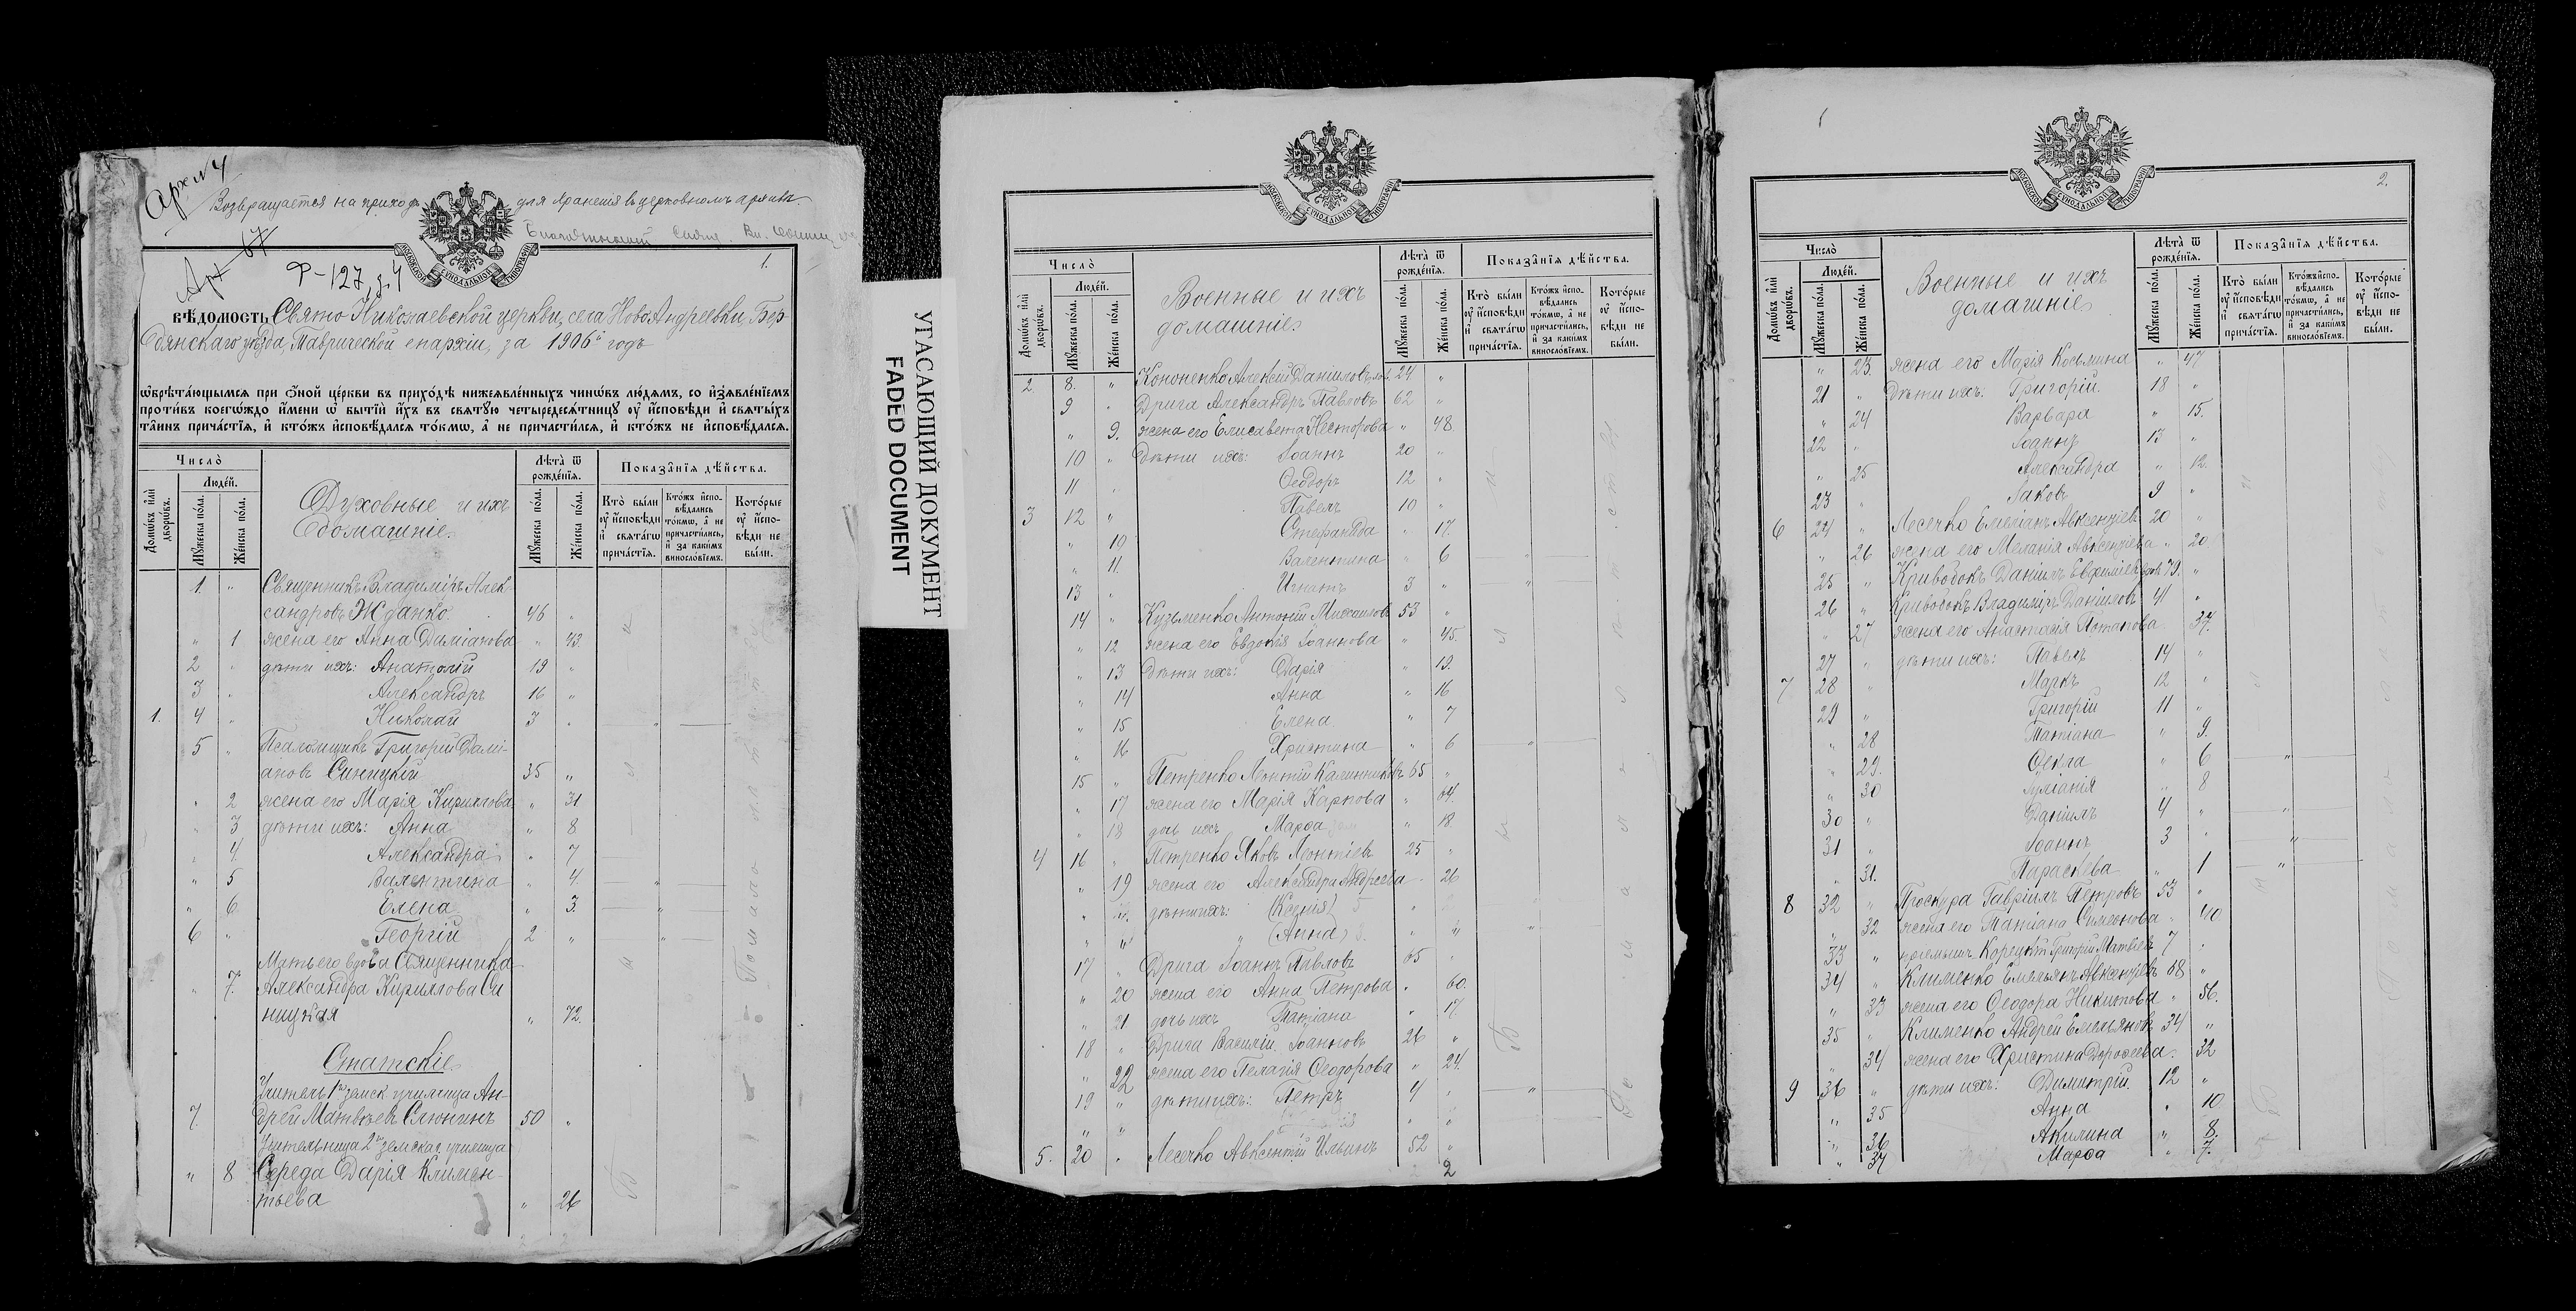 Арх №4
Возвращается на приходъ для храненія въ церковномъ архивѣ.
МОСКОВСКОЙ СѴНОДАЛЬНОЙ ТИПОГРАФІИ
Арх 67
Ф-127, д. 4
1.
вѣ́домость Свято-Николаевской церкви, села НовоАндреевки, Бер-
дянскаго уѣзда, Таврической епархіи, за 1906й годъ
ѡ҆брѣта́ющымсѧ при ѻ҆́ной це́ркви въ прихо́дѣ нижеѧвле́нныхъ чинѡ́въ лю́демъ, со и҆з̾ѧвле́нїемъ
проти́въ коегѡ́ждо и҆́мени ѡ҆ бытїѝ и҆́хъ въ свѧтꙋ́ю четыредесѧ́тницꙋ ᲂу҆ и҆́сповѣди и҆ свѧты́хъ
та́инъ прича́стїѧ, и҆ кто́жъ и҆сповѣ́далсѧ то́кмѡ, а҆ не причасти́лсѧ, и҆ кто́жъ не и҆сповѣ́далсѧ.
Число̀
Домѡ́въ и҆лѝ дворѡ́въ.
Люде́й.
Мꙋ́жеска по́ла.
Же́нска по́ла.
Духовные и ихъ
домашніе.
Лѣ́та ѿ рожде́нїѧ.
Мꙋ́жеска по́ла.
Же́нска по́ла.
Показа̑нїѧ дѣ́йства.
Кто̀ бы́ли ᲂу҆ и҆́сповѣди и҆ свѧта́гѡ прича́стїѧ.
Кто́жъ и҆сповѣ́дались то́кмѡ, а҆ не причасти́лись, и҆ за каки́мъ винослóвїемъ.
Кото́рые ᲂу҆ и҆́сповѣди не бы́ли.
1. " Священникъ Владиміръ Алек-
сандровъ Жданко. 46 "
" 1 жена его Анна Даміанова " 43.
2 " дѣти ихъ: Анатолій 19 "
3 " Александръ 16 "
1. 4 " Николай 3 " "
5 " Псаломщикъ Григорій Дамі-
ановъ Синицкій 35 "
" 2 жена его Марія Кириллова " 31
" 3 дѣти ихъ: Анна " 8
" 4. Александра " 7
" 5 Валентина " 4. "
" 6. Елена " 3. "
6 " Георгій 2 " "
Мать его вдова Священника
" 7. Александра Кириллова Си
ницкая " 72.
Статскіе
Учитель 1го земск. училища Ан-
7. дрей Матвѣевъ Слюнинъ 50 "
Учительница 2го земскаг. училища
" 8 Середа Дарія Климен-
тьева " 26
УГАСАЮЩИЙ ДОКУМЕНТ
FADED DOCUMENT
МОСКОВСКОЙ СѴНОДАЛЬНОЙ ТИПОГРАФІИ
Число̀
Домѡ́въ и҆лѝ дворѡ́въ.
Люде́й.
Мꙋ́жеска по́ла.
Же́нска по́ла.
Военные и ихъ
домашніе
Лѣ́та ѿ рожде́нїѧ.
Мꙋ́жеска по́ла.
Же́нска по́ла.
Показа̑нїѧ дѣ́йства.
Кто̀ бы́ли ᲂу҆ и҆́сповѣди и҆ свѧта́гѡ прича́стїѧ.
Кто́жъ и҆сповѣ́дались то́кмѡ, а҆ не причасти́лись, и҆ за каки́мъ винослóвїемъ.
Кото́рые ᲂу҆ и҆́сповѣди не бы́ли.
2 8. " Кононенко Алексій Даніиловъ 24 "
9 " Дрига Александръ Павловъ 62 "
" 9. жена его Елисавета Несторова " 48
10 " Дѣти ихъ: Іоаннъ 20 "
11 " Ѳеодоръ 12 "
3 12 " Павелъ 10 "
" 10 Стефанида " 17.
" 11. Валентина " 6 "
13 " Игнатъ 3 " "
14 " Кузьменко Антоній Михаиловъ 53 "
" 12 жена его Евдокія Іоаннова " 45.
" 13 Дѣти ихъ: Дарія " 19.
" 14 Анна " 16
" 15 Елена " 7
" 16 Христина " 6 "
15 " Петренко Леонтій Калинниковъ 65 "
" 17 жена его Марія Карпова " 64.
" 18 дочь ихъ Марѳа " 18.
4 16 " Петренко Яковъ Леонтіевъ 25 "
" 19 жена его Александра Андреева " 26
дѣти ихъ: (Ксенія)
" " (Анна) " "
17 " Дрига Іоаннъ Павловъ 65 "
" 20 жена его Анна Петрова " 60.
" 21 дочь ихъ Татіана " 17.
18 " Дрига Василій Іоанновъ 26 "
" 22 жена его Пелагія Ѳеодорова " 24.
19 " дѣти ихъ: Петръ 4 " "
5. 20 " Лесечко Авксентій Ильинъ 52 "
2
МОСКОВСКОЙ СѴНОДАЛЬНОЙ ТИПОГРАФІИ
2.
Число̀
Домѡ́въ и҆лѝ дворѡ́въ.
Люде́й.
Мꙋ́жеска по́ла.
Же́нска по́ла.
Военные и ихъ
домашніе
Лѣ́та ѿ рожде́нїѧ.
Мꙋ́жеска по́ла.
Же́нска по́ла.
Показа̑нїѧ дѣ́йства.
Кто̀ бы́ли ᲂу҆ и҆́сповѣди и҆ свѧта́гѡ прича́стїѧ.
Кто́жъ и҆сповѣ́дались то́кмѡ, а҆ не причасти́лись, и҆ за каки́мъ винослóвїемъ.
Кото́рые ᲂу҆ и҆́сповѣди не бы́ли.
" 23. жена его Марія Косьмина " 47
21 " Дѣти ихъ: Григорій. 18 "
" 24 Варвара " 15.
22 " Іоаннъ 13 "
" 25 Александра " 12.
23 " Іаковъ 9 "
6 24 " Лесечко Емеліанъ Авксентіевъ 20 "
" 26 жена его Меланія Авксентіева " 20
25 " Кривобокъ Даніилъ Евфиміевъ вдов. 79. "
26 " Кривобокъ Владиміръ Даніиловъ 41 "
" 27 жена его Анастасія Потапова " 37.
27 " дѣти ихъ: Павелъ 14 "
7 28 " Маркъ 12 "
29 " Григорій 11 "
" 28 Татіана " 9.
" 29. Ѳекла " 6 "
" 30 Іуліанія " 8
30 " Даніилъ 4 " "
31 " Іоаннъ 3 " "
" 31. Параскева " 1 "
8 32 " Проскура Гавріилъ Петровъ 53 "
" 32 жена его Татіана Симеонова " 40
33 " пріемышъ Корецкій Григорій Матвѣевъ 7 "
34 " Клименко Емельянъ Авксентіевъ 68 "
" 33 жена его Ѳеодора Никитова " 56.
35 " Клименко Андрей Емельяновъ 34 "
" 34 жена его Христина Дороѳеева " 32
9 36 " дѣти ихъ: Димитрій. 12 "
" 35 Анна " 10
" 36 Акилина " 8.
" 37 Марѳа " 7.